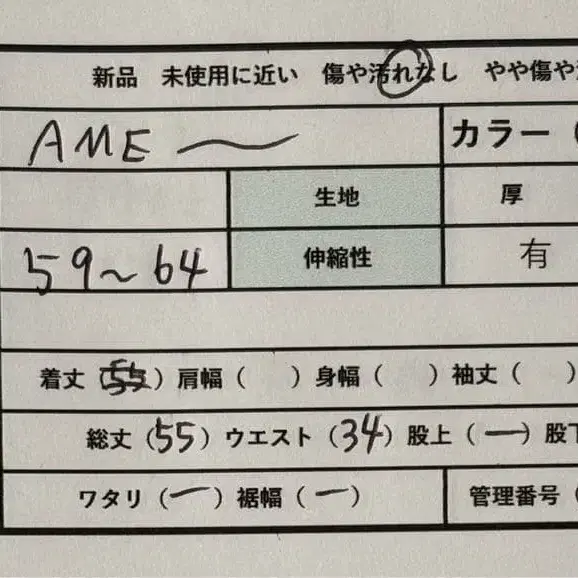 新品 未使用に近い 傷や汚れなし やや傷や
AME カラー（
生地 厚
59~64 伸縮性 有
着丈（55）肩幅（ ）身幅（ ）袖丈（ ）
総丈（55）ウエスト（34）股上（ー）股下
ワタリ（ー）裾幅（ー） 管理番号（